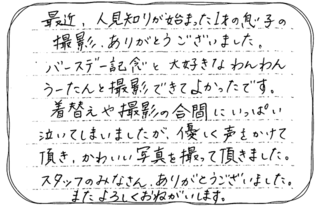 最近、人見知りが始まった1才の息子の
撮影、ありがとうございました。
バースデー記念と大好きなわんわん
うーたんと撮影できてよかったです。
着替えや撮影の合間にいっぱい
泣いてしまいましたが、優しく声をかけて
頂き、かわいい写真を撮って頂きました。
スタッフのみなさん、ありがとうございました。
またよろしくおねがいします。